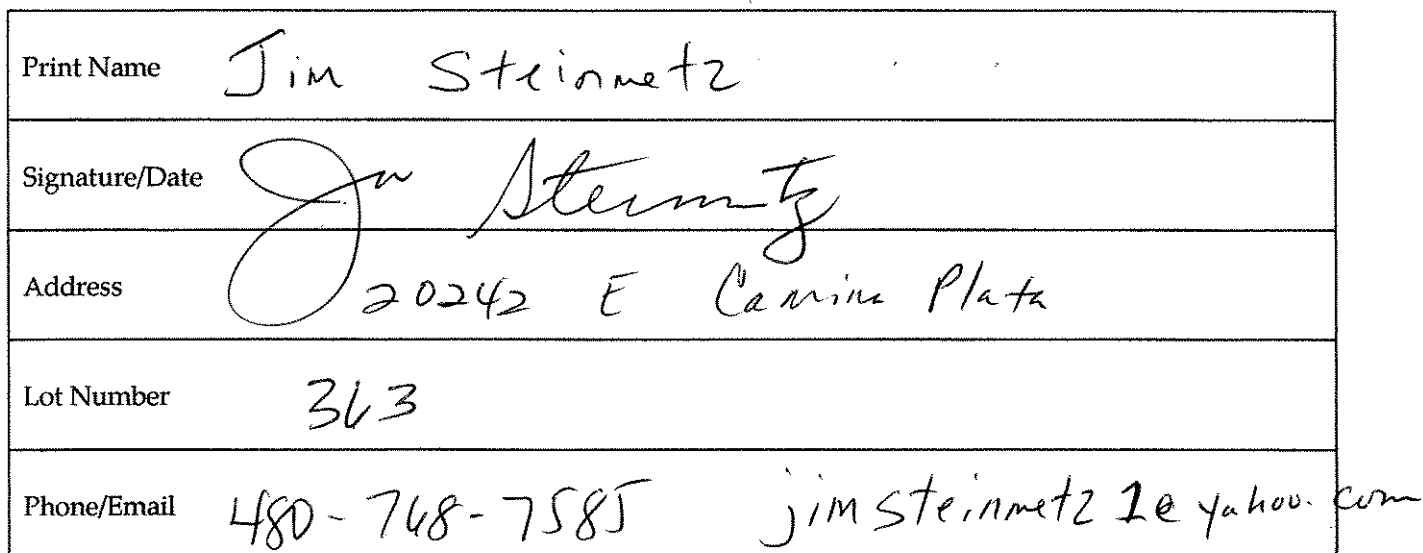 Print Name Jim Steinmetz
Signature/Date Jim Steinmetz
Address 20242 E Camina Plata
Lot Number 363
Phone/Email 480-768-7585 jimsteinmetz1@yahoo.com